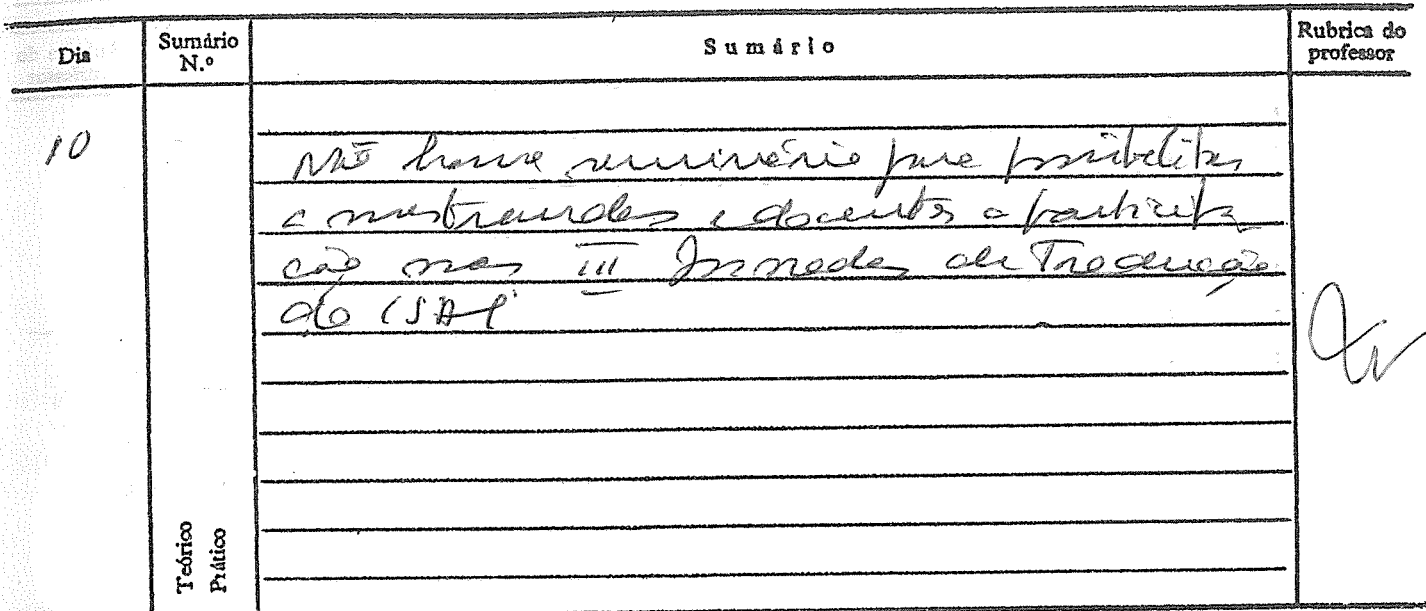 Dia
Sumário N.º
Sumário
Rubrica do professor
10
Não houve seminário para possibilitar
a mestrandos e docentes a participa
ção nas III Jornadas de Tradução
do ISAP
Teórico
Prático